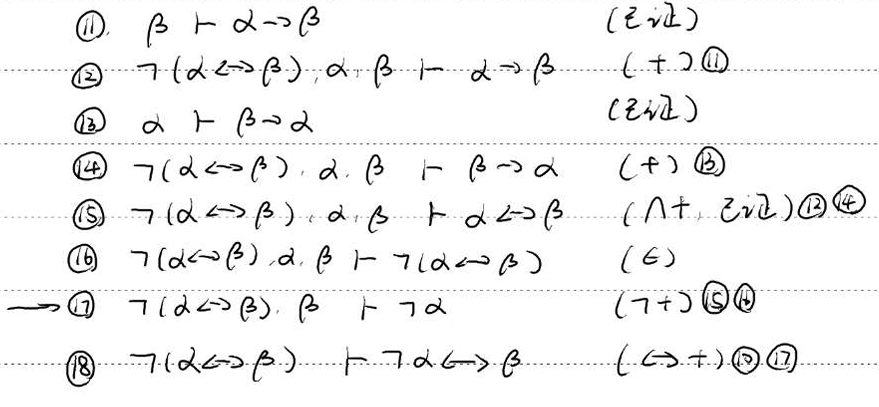 ⑪. β ⊢ α→β (已证)
⑫ ¬(α↔β), α, β ⊢ α→β (+)⑪
⑬ α ⊢ β→α (已证)
⑭ ¬(α↔β), α, β ⊢ β→α (+)⑬
⑮ ¬(α↔β), α, β ⊢ α↔β (∧+, 已证)⑫⑭
⑯ ¬(α↔β), α, β ⊢ ¬(α↔β) (∈)
→⑰ ¬(α↔β), β ⊢ ¬α (¬+)⑮⑯
⑱ ¬(α↔β) ⊢ ¬α↔β (↔+)⑩⑰